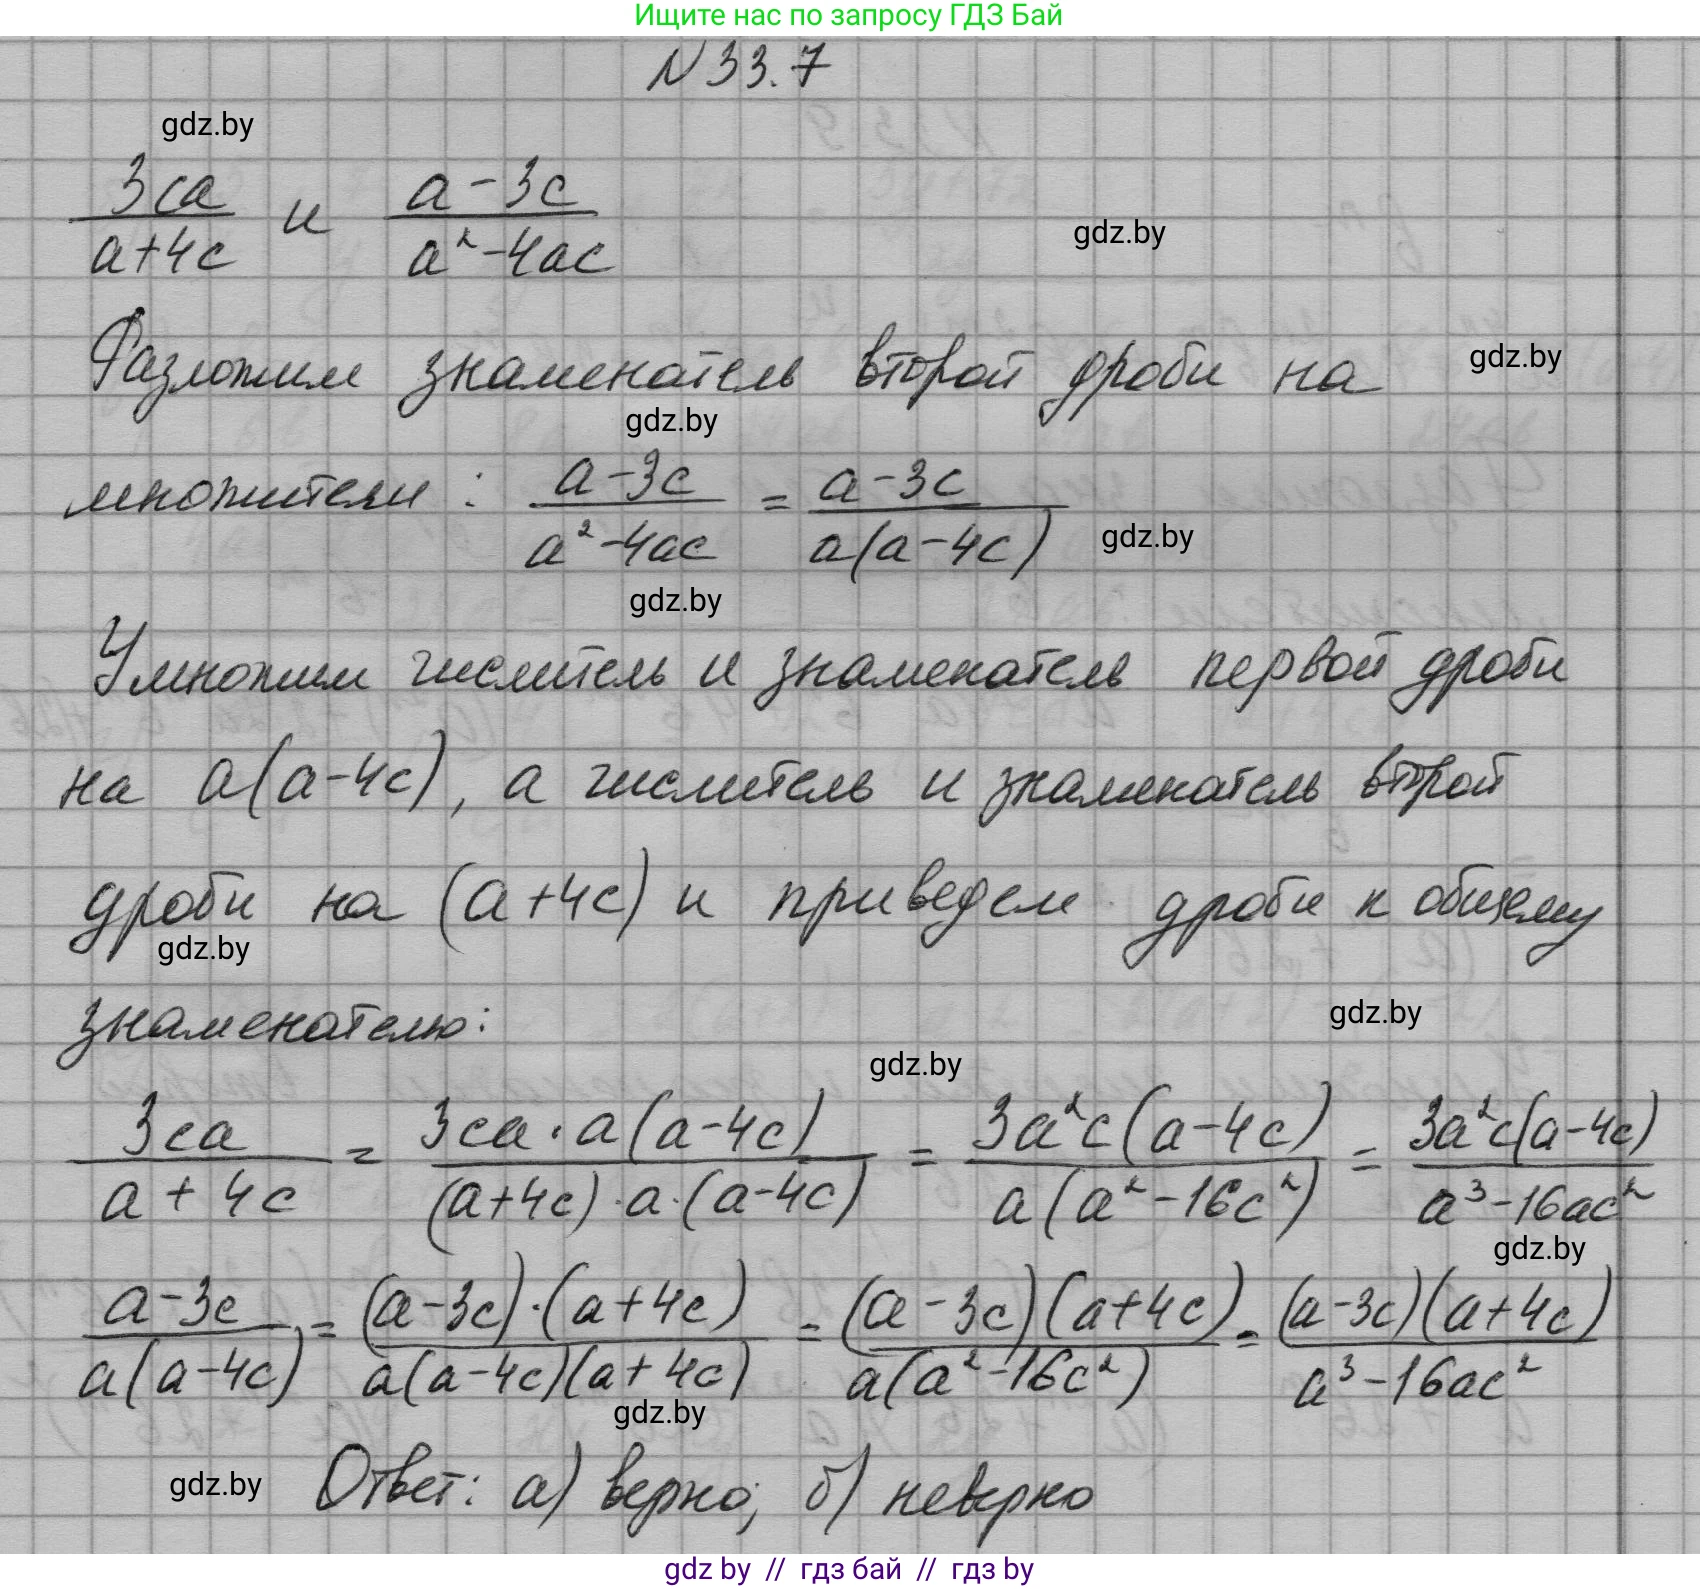 Ищите нас по запросу ГДЗ Бай
N 33.7
gdz.by
3ca/(a+4c) и (a-3c)/(a²-4ac)
gdz.by
Разложим знаменатель второй дроби на
gdz.by
gdz.by
множители: (a-3c)/(a²-4ac) = (a-3c)/(a(a-4c))
gdz.by
gdz.by
Умножим числитель и знаменатель первой дроби
на a(a-4c), а числитель и знаменатель второй
дроби на (a+4c) и приведем дроби к общему
gdz.by
знаменателю:
gdz.by
gdz.by
3ca/(a+4c) = (3ca·a(a-4c))/((a+4c)·a·(a-4c)) = (3a²c(a-4c))/(a(a²-16c²)) = (3a²c(a-4c))/(a³-16ac²)
gdz.by
(a-3c)/(a(a-4c)) = ((a-3c)·(a+4c))/(a(a-4c)(a+4c)) = ((a-3c)(a+4c))/(a(a²-16c²)) = ((a-3c)(a+4c))/(a³-16ac²)
gdz.by
gdz.by
Ответ: а) верно; б) неверно
gdz by // гдз бай // гдз by